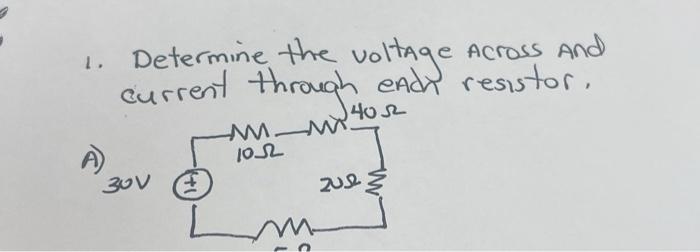 1. Determine the voltage Across And
current through each resistor.
40Ω
10Ω
A)
30V
20Ω